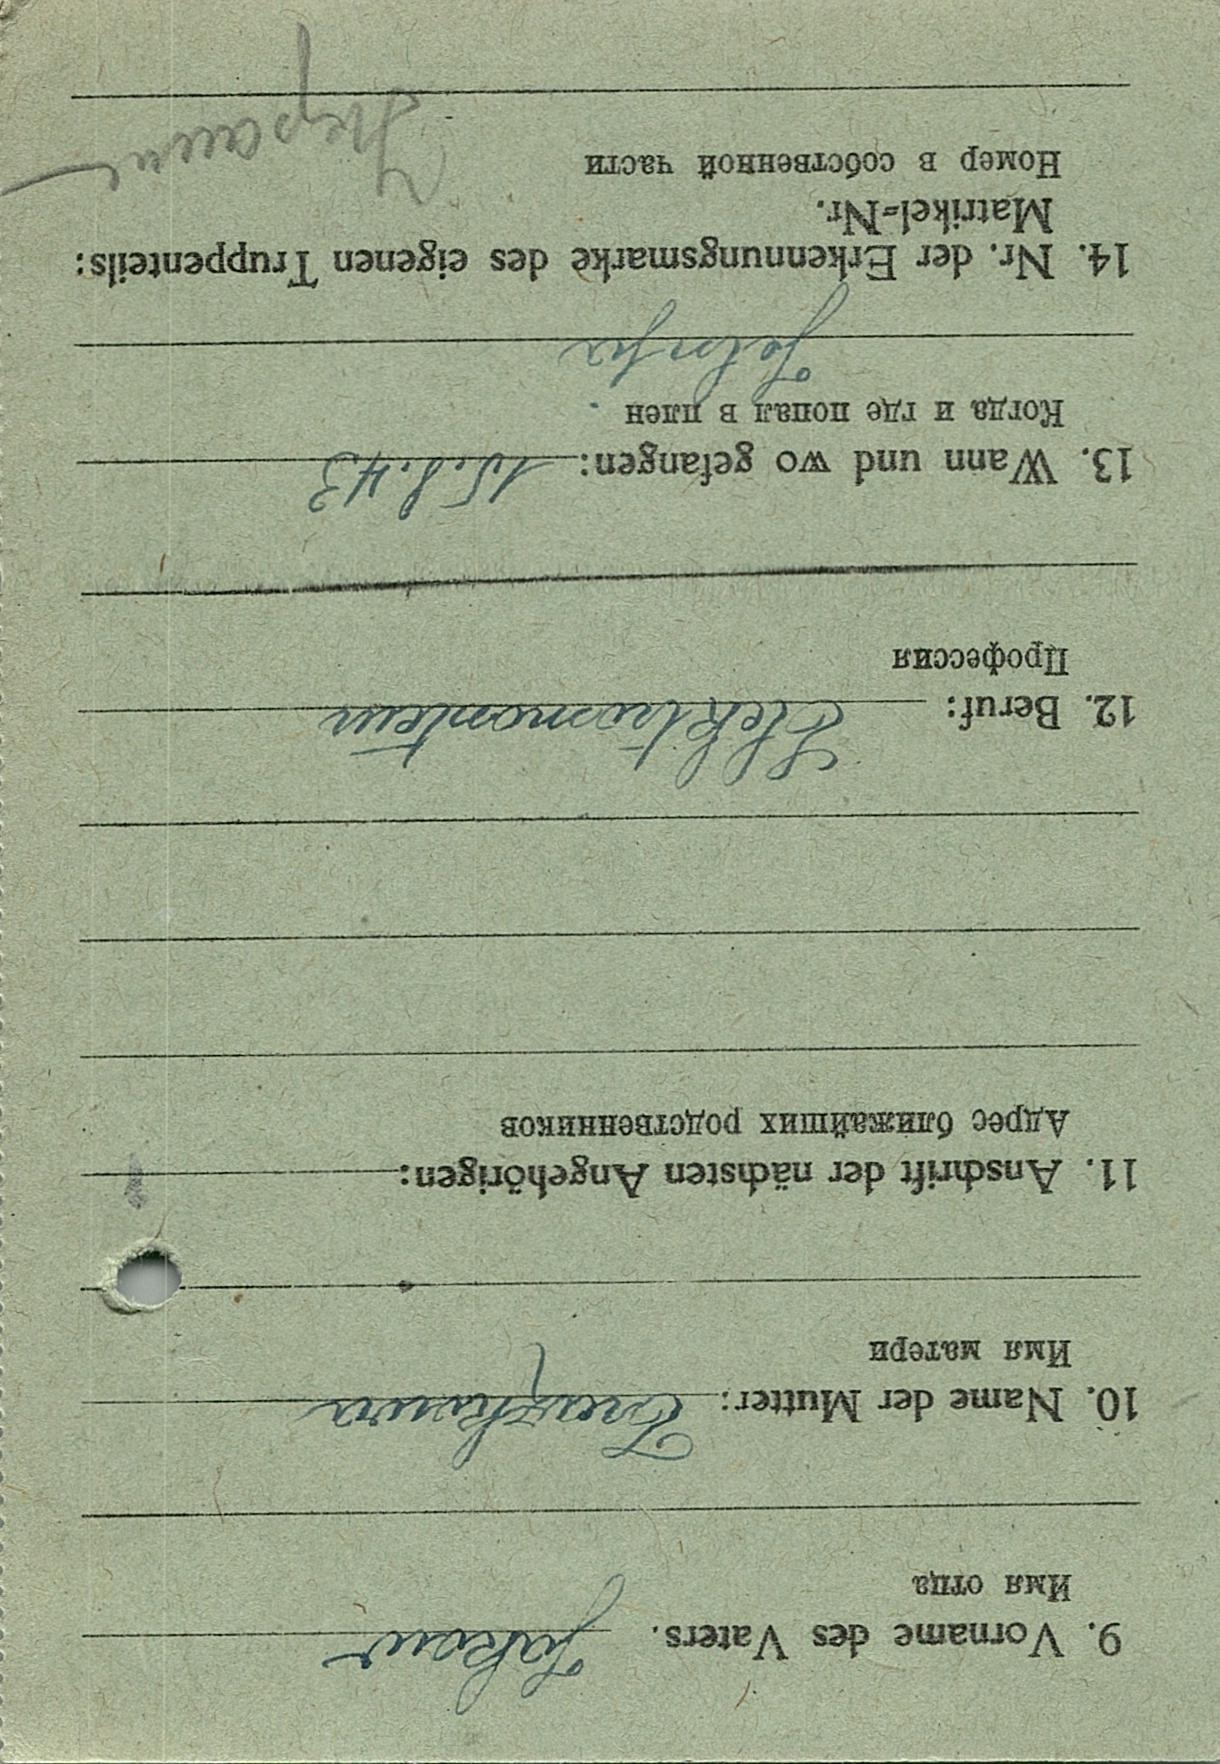 9. Vorname des Vaters. Jakow
Имя отца
10. Name der Mutter:
Имя матери
11. Anschrift der nächsten Angehörigen:
Адрес ближайших родственников
12. Beruf: Elektromonteur
Профессия
13. Wann und wo gefangen: 15.8.43
Когда и где попал в плен
14. Nr. der Erkennungsmarke des eigenen Truppenteils:
Matrikel-Nr.
Номер в собственной части